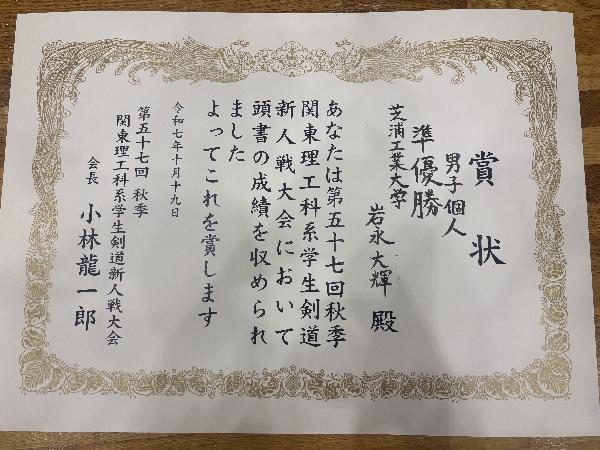 賞状
男子個人
準優勝
芝浦工業大学
岩永大輝 殿
あなたは第五十七回秋季
関東理工科系学生剣道
新人戦大会において
頭書の成績を収められ
ました
よってこれを賞します
令和七年十月十九日
第五十七回 秋季
関東理工科系学生剣道新人戦大会
会長 小林龍一郎